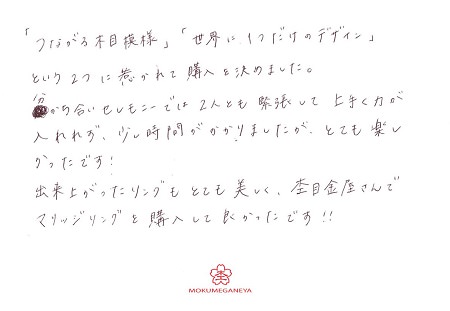 「つながる木目模様」「世界に1つだけのデザイン」
という2つに惹かれて購入を決めました。
分かち合いセレモニーでは2人とも緊張して上手く力が
入れれず、少し時間がかかりましたが、とても楽し
かったです!
出来上がったリングもとても美しく、杢目金屋さんで
マリッジリングを購入して良かったです!!
杢
MOKUMEGANEYA